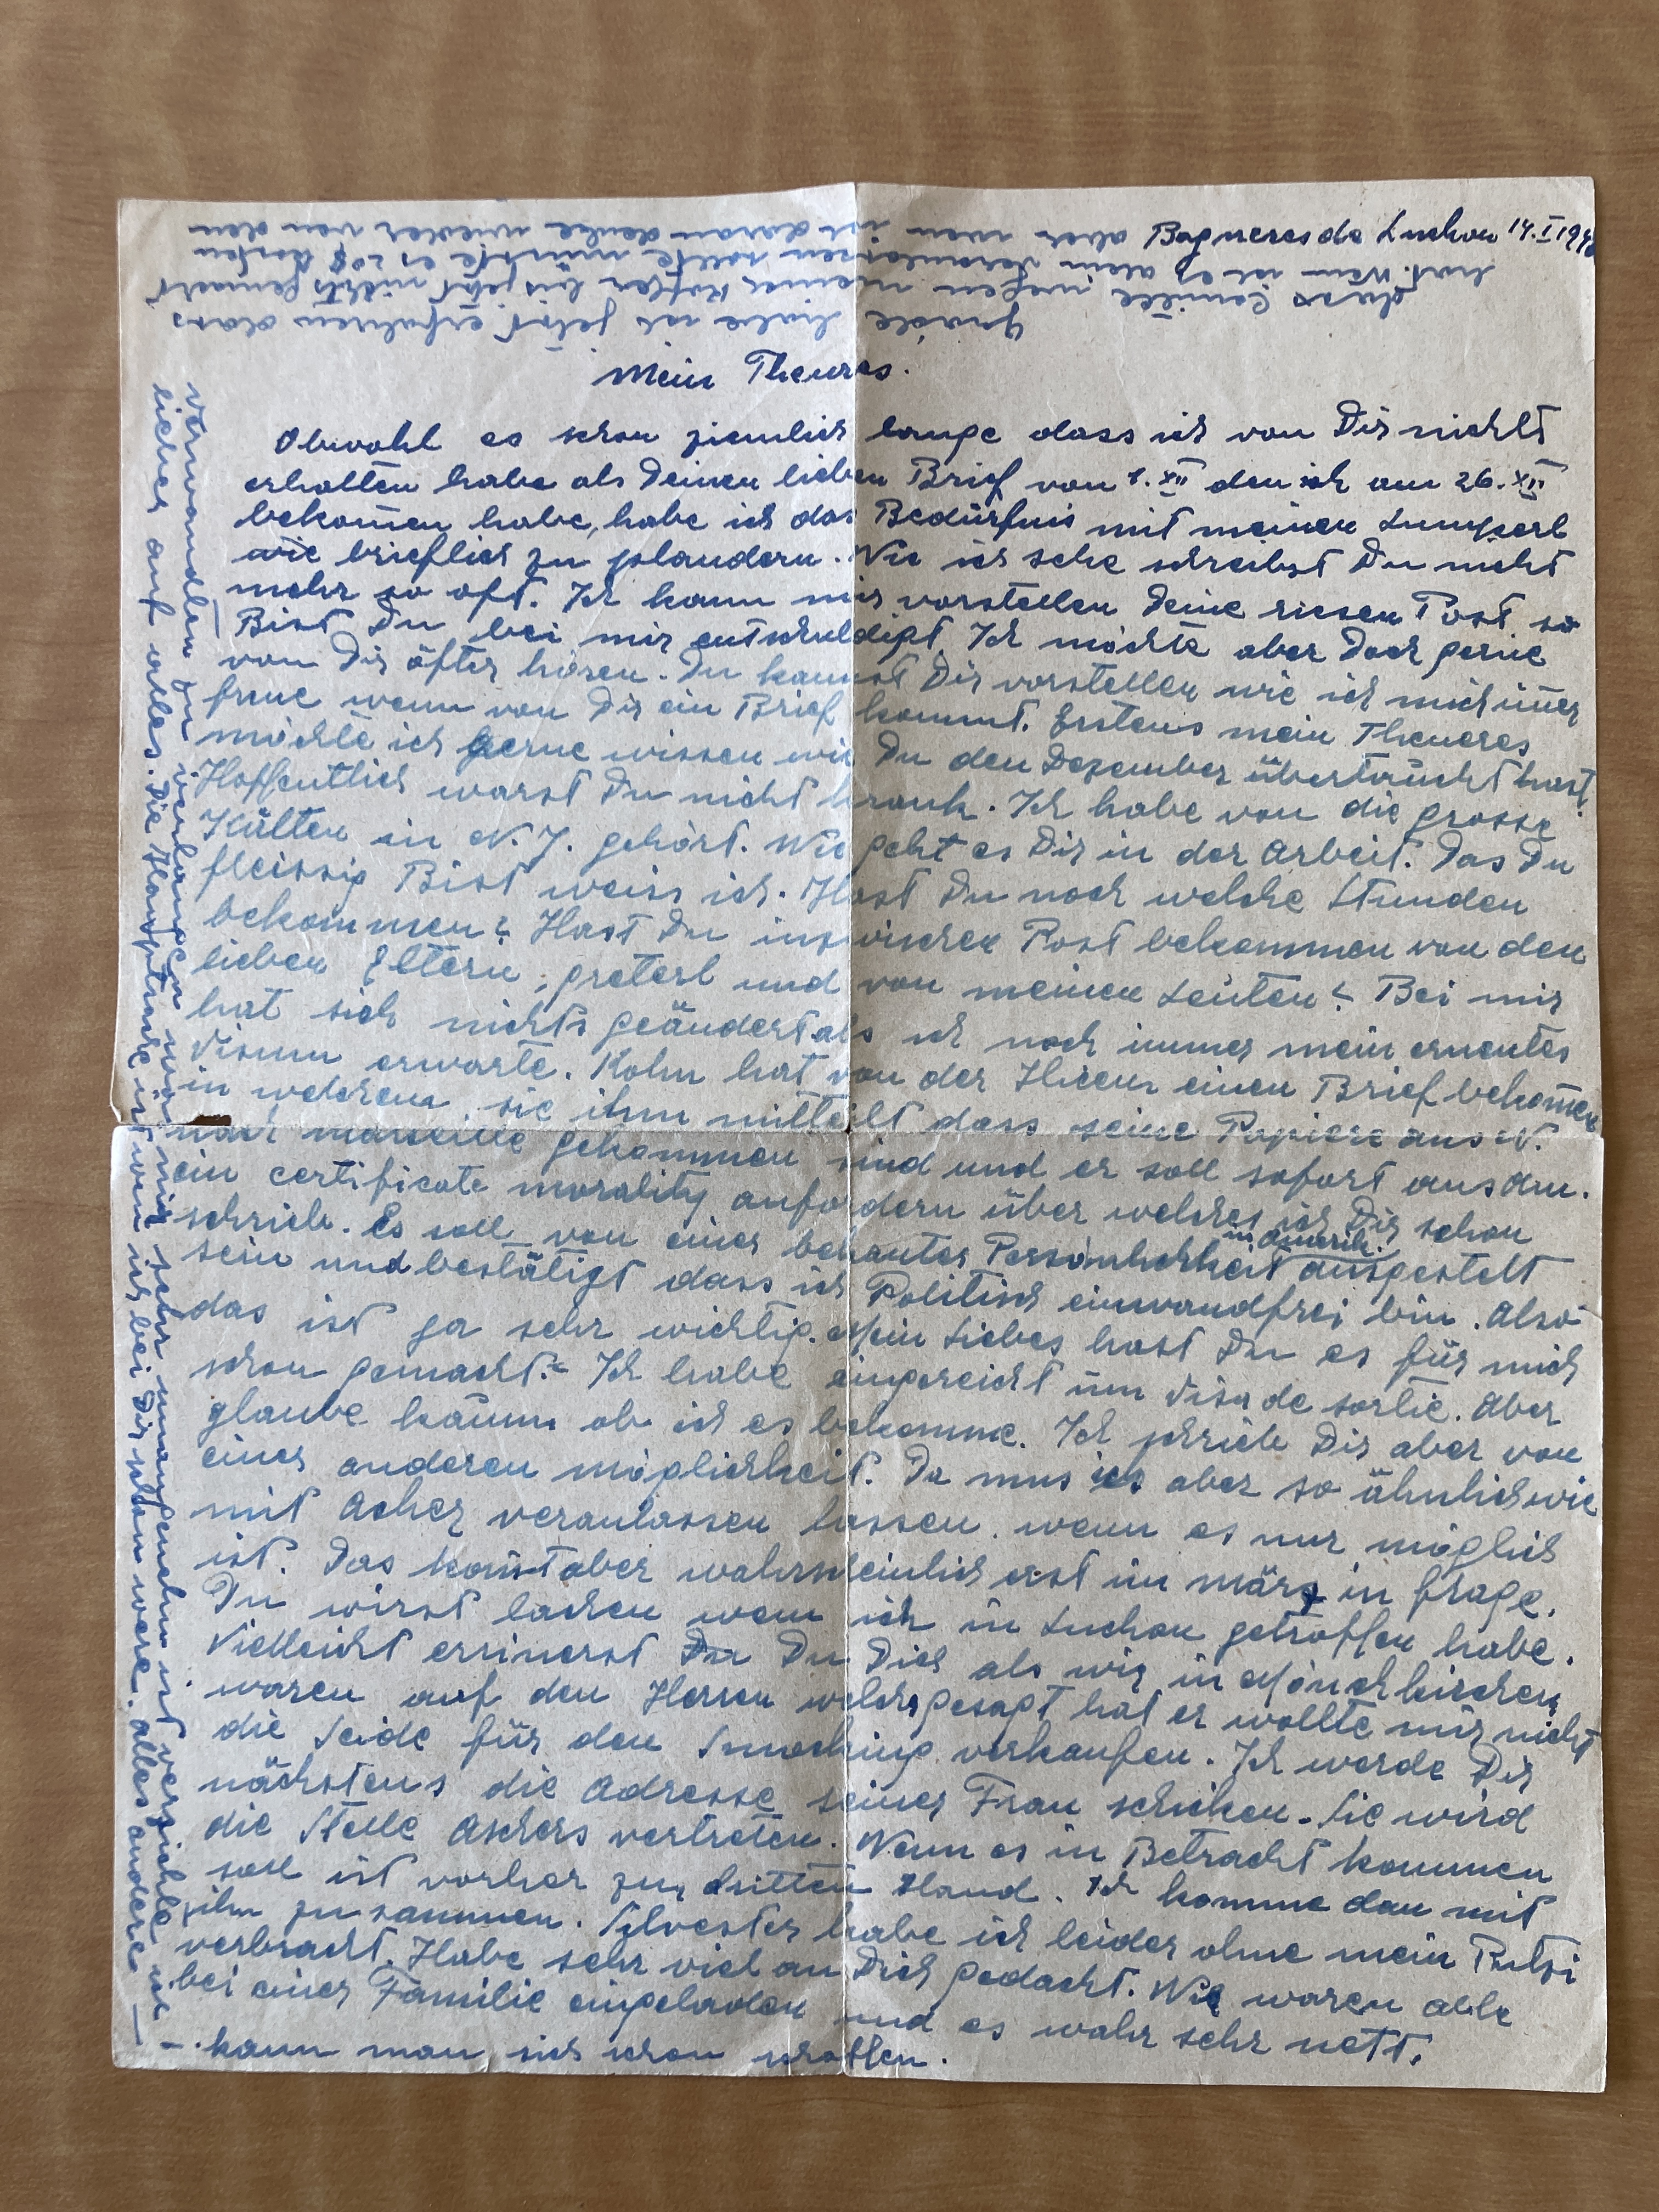 Bagneres de Luchon 14.I 194
Mein Theures.
Obwohl es schon ziemlich lange dass ich von Dir nichts
erhalten habe als Deinen lieben Brief von 1. XII den ich am 26. XII
bekom̄en habe, habe ich das Bedürfnis mit meinen Lumperl
wie brieflich zu plaudern. Wie ich sehe schreibst Du nicht
mehr so oft. Ich kann mir vorstellen Deine riesen Post, so
Bist Du bei mir entschuldigt. Ich möchte aber doch gerne
von Dir öfter hören. Du kannst Dir vorstellen wie ich mich im̄er
freue wenn von Dir ein Brief kommt. Erstens mein Theueres
möchte ich gerne wissen wie Du den Dezember übertaucht hast.
Hoffentlich warst Du nicht krank. Ich habe von die grosse
Kälten in N. J. gehört. Wie geht es Dir in der Arbeit. Das Du
fleissig Bist weiss ich. Hast Du noch welche Stunden
bekommen? Hast Du inzwischen Post bekommen von den
lieben Eltern, Greterl und von meinen Leuten? Bei mir
hat sich nichts geändert als ich noch immer mein erneutes
Visum erwarte. Kohn hat von der Hicem einen Brief bekom̄en
in welchem sie ihm mitteilt dass seine Papiere aus W.
nach Marseille gekommen sind und er soll sofort aus Am.
ein certificate morality anfordern über welches ich Dir schon
schrieb. Es soll von einer bekanter Persönlichkeit in Amerik. ausgestelt
sein und bestätigt dass ich Politisch einwandfrei bin. Also
das ist ja sehr wichtig. Mein Liebes hast Du es für mich
schon gemacht? Ich habe eingereicht um Visa de sortie. Aber
glaube kaum ob ich es bekomme. Ich schrieb Dir aber von
einer anderen möglichkeit. Da mus ich aber so ähnlich wie
mit Acher veranlassen lassen, wenn es nur möglich
ist. Das kom̄t aber wahrscheinlich erst im März in frage.
Du wirst lachen wem ich in Luchon getroffen habe.
Vielleicht errinerst Du Dich als wir in Mönchkirchen
waren auf den Herren welcher gesagt hat er wollte mir nicht
die Seide für den Smocking verkaufen. Ich werde Dir
nächstens die Adresse seiner Frau schicken. Sie wird
die Stelle Aschers vertreten. Wenn es in Betracht kommen
soll ist vorher zur dritten Hand. Ich komme dan mit
ihm zusammen. Silvester habe ich leider ohne mein Putzi
verbracht. Habe sehr viel an Dich gedacht. Wir waren alle
bei einer Familie eingeladen und es wahr sehr nett.
Grade habe ich jetzt erfahren dass
dass Camille wegen meiner Koffer bis jetzt nichts gemacht
hat. Wen ich es allein veranlassen sollte müsste es 20$ kosten
aber wen ich daran denke wieder von den
verwandten zu verlangen wär mir sehr unangenehm ist verzichte ich
lieber auf alles. Die Hauptsache ist wen ich bei Dir schon were. alles andere —
— kann man sich schon schaffen.